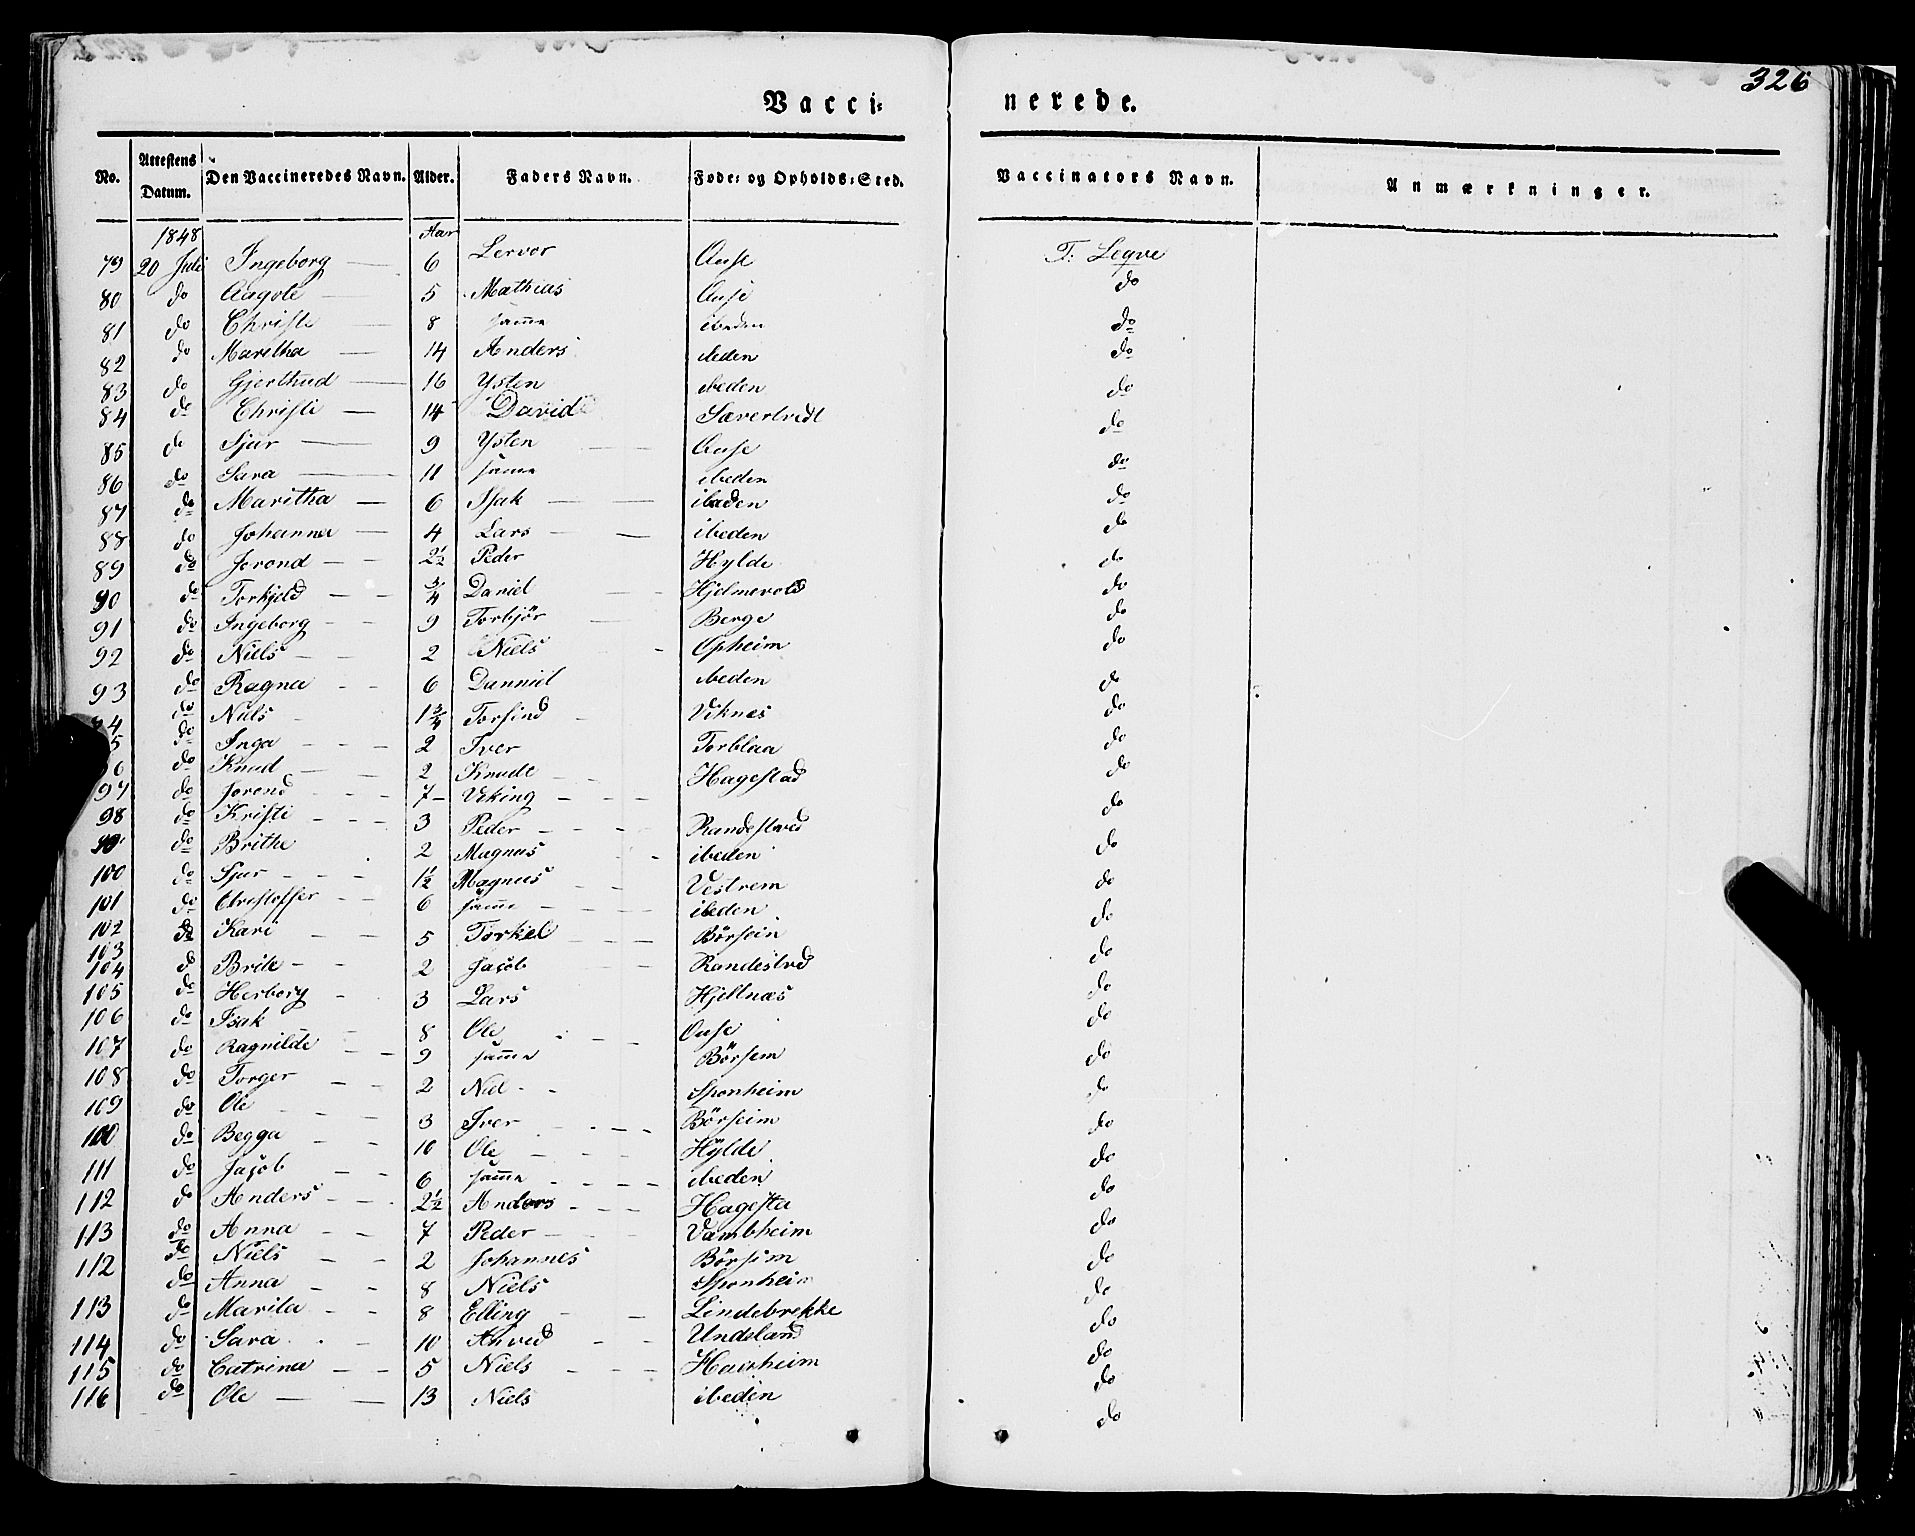 326
Vacci= nerede.
No. Attestens Datum. Den Vaccineredes Navn. Alder. Faders Navn. Føde= og Opholds=Sted. Vaccinators Navn. Anmærkninger.
1848 Aar
79 20 Juli Ingeborg 6 Lervor Ouse T: Legve
80 do Aagote 5 Mathias Ouse do
81 do Christi 8 samme ibeden do
82 do Maretha 14 Anders ibeden do
83 do Gjerthrud 16 Ysten ibeden do
84 do Christi 14 David Sævertvedt do
85 do Sjur 9 Ysten Ouse do
86 do Sara 11 samme ibeden do
87 do Maritha 6 Isak ibeden do
88 do Johanna 4 Lars ibeden do
89 do Jorond 2½ Peder Hylde do
90 do Torkjeld ¾ Daniel Hjelmevold do
91 do Ingeborg 9 Torbjör Berge do
92 do Niels 2 Niels Opheim do
93 do Ragna 6 Danniel ibeden do
94 do Niels 1¾ Torfind Viknes do
5 do Inga 2 Iver Torblaa do
6 do Knud 2 Knude Hagestad do
97 do Jorond 7 Viking
98 do Kristi 3 Peder Randestved do
99 do Brithe 2 Magnus ibeden do
100 do Sjur 1½ Magnus Vestrem do
101 do Christoffer 6 samme ibeden do
102 do Kari 5 Torkel Börsein do
103
104 do Brite 2 Jacob Randestved do
105 do Herborg 3 Lars Hjeltnæs do
106 do Isak 8 Ole Ouse do
107 do Ragnilde 9 samme Börsem do
108 do Torger 2 Niel Sponheim do
109 do Ole 3 Iver Börseim do
100 do Begga 10 Ole Hylde do
111 do Jacob 6 samme ibeden do
112 do Anders 2½ Anders Hagesta do
113 do Anna 7 Peder Vambheim do
112 do Niels 2 Johannes Börsim do
do Anna 8 Niels Sponheim do
113 do Marita 8 Elling Lindebrekke do
114 do Sara 10 Undeland do
115 do Catrina 5 Niels Havrheim do
116 do Ole 13 Niels ibeden do